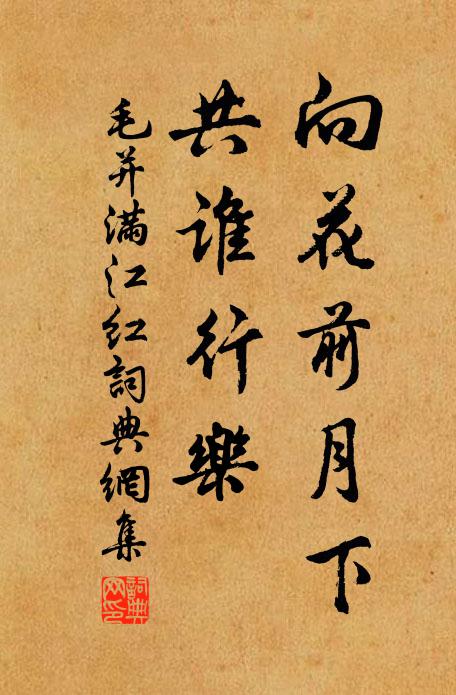 向花前月下
共谁行樂
毛并满江红詞典網集
詞典
网印